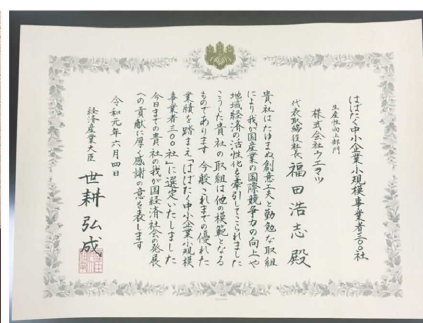 はばたく中小企業小規模事業者三〇〇社
生産性向上部門
株式会社ウエマツ
代表取締役社長 福田浩志 殿
貴社はたゆまぬ創意工夫と勤勉な取組
により我が国産業の国際競争力の向上や
地域経済の活性化を牽引してこられました
こうした貴社の取組は他の模範となる
ものであります 今般これまでの優れた
業績を踏まえ「はばたく中小企業小規模
事業者三〇〇社」に選定いたしました
今日までの貴社の我が国経済社会の発展
への貢献に厚く感謝の意を表します
令和元年六月四日
経済産業大臣 世耕弘成